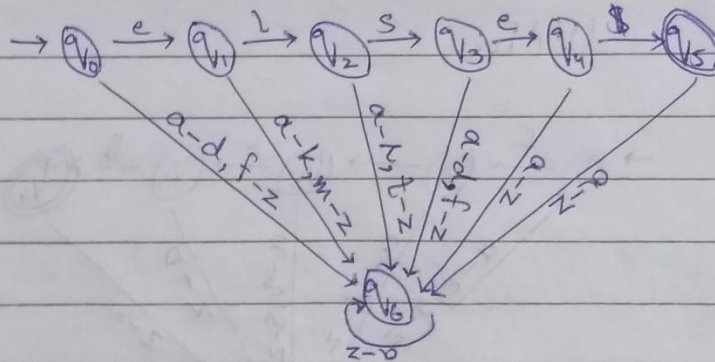 e l s e $
q0 q1 q2 q3 q4 q5
a-d, f-z a-k, m-z a-r, t-z a-d, f-z a-z a-z
q6
a-z